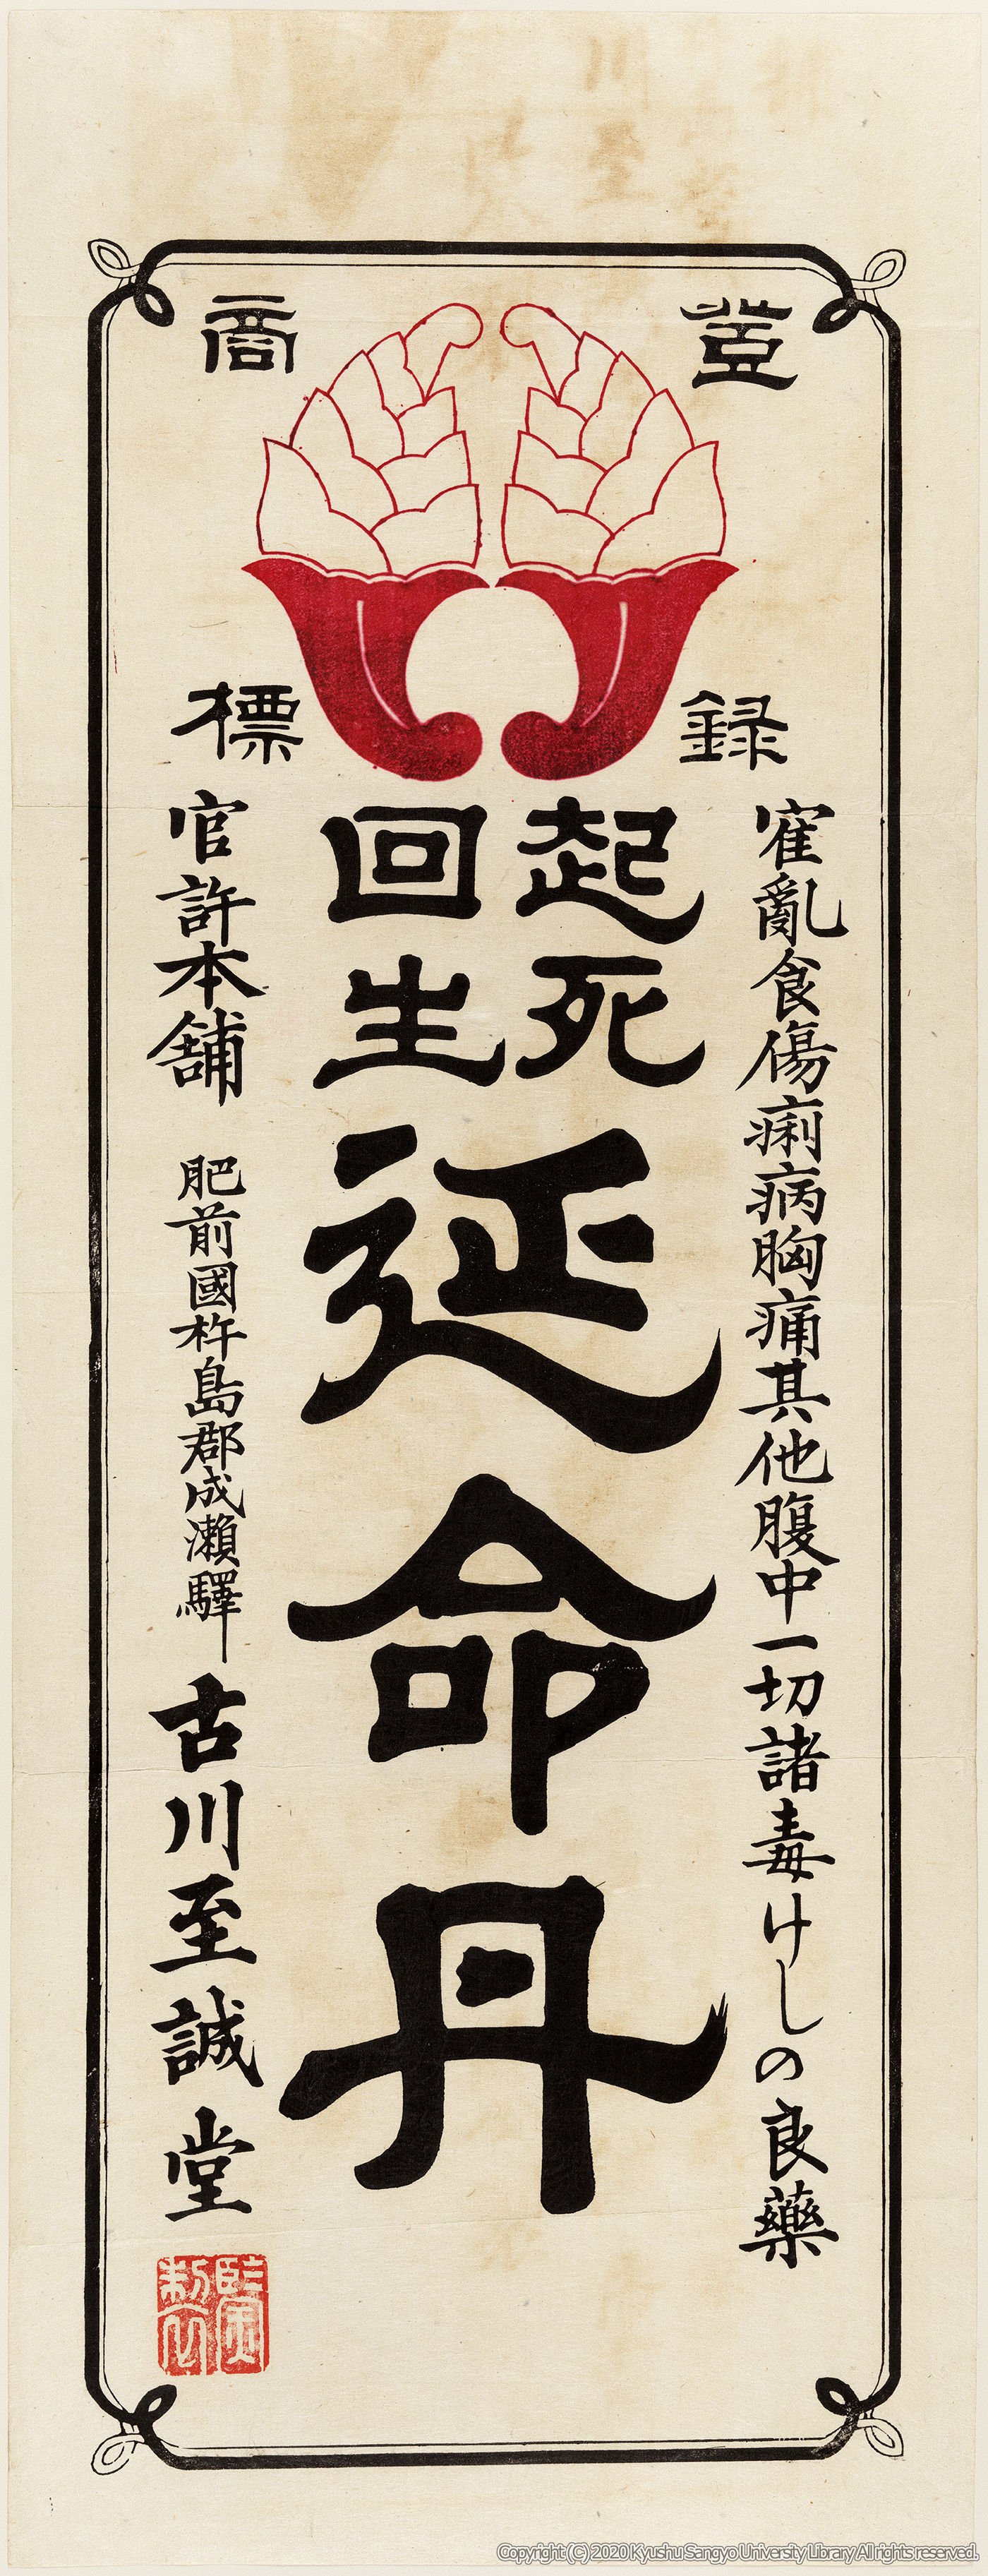 登録
商標
霍亂食傷痢病胸痛其他腹中一切諸毒けしの良藥
起死
回生
延命丹
官許本舗 肥前國杵島郡成瀬驛 古川至誠堂
Copyright (C) 2020 Kyushu Sangyo University Library All rights reserved.